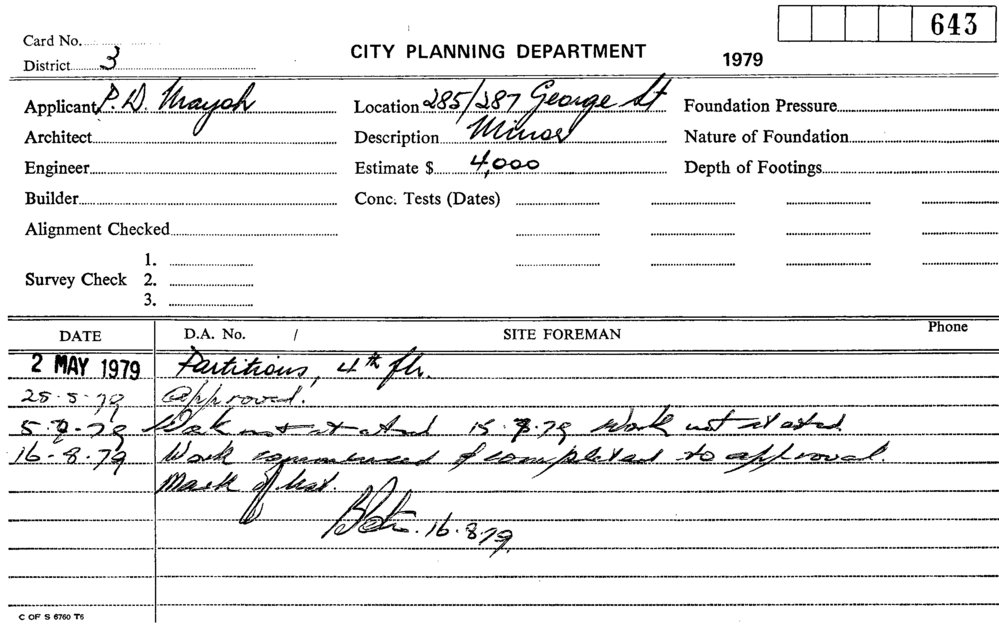 643
Card No.
CITY PLANNING DEPARTMENT 1979
District 3
Applicant P. D. Mayoh Location 285/287 George St Foundation Pressure
Architect Description Minor Nature of Foundation
Engineer Estimate $ 4,000 Depth of Footings
Builder Conc. Tests (Dates)
Alignment Checked
1.
Survey Check 2.
3.
DATE D.A. No. / SITE FOREMAN Phone
2 MAY 1979 Partitions, 4th flr.
25.5.79 Approved.
79 Work not started 79 Work not started
16-8-79 Work commenced & completed to approval.
Mark off
16.8.79
C OF S 6760 T6